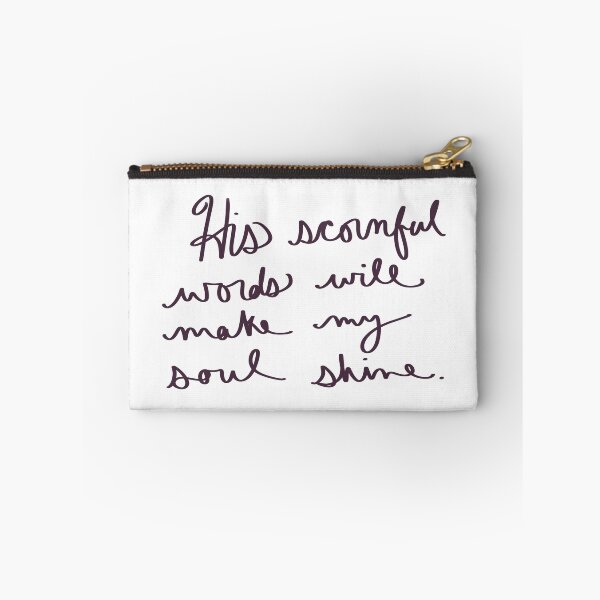 His scornful
words will
make my
soul shine.